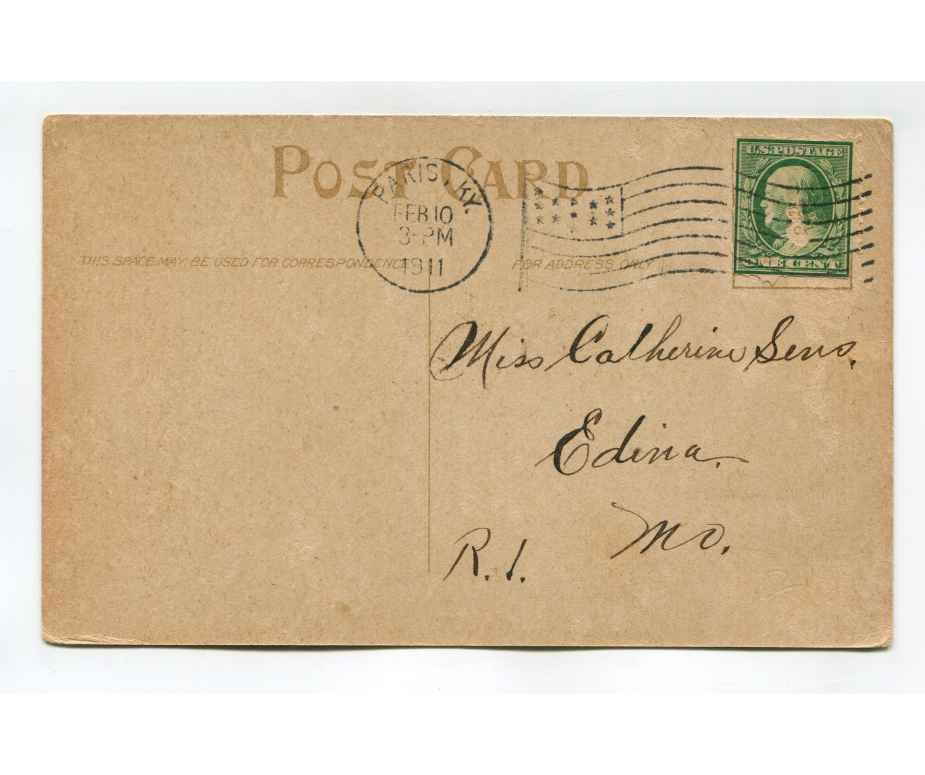 POST CARD
PARIS, KY.
FEB 10
3-PM
1911
U.S. POSTAGE
THIS SPACE MAY BE USED FOR CORRESPONDENCE
FOR ADDRESS ONLY
Miss Catherine Sens.
Edina.
Mo.
R. 1.